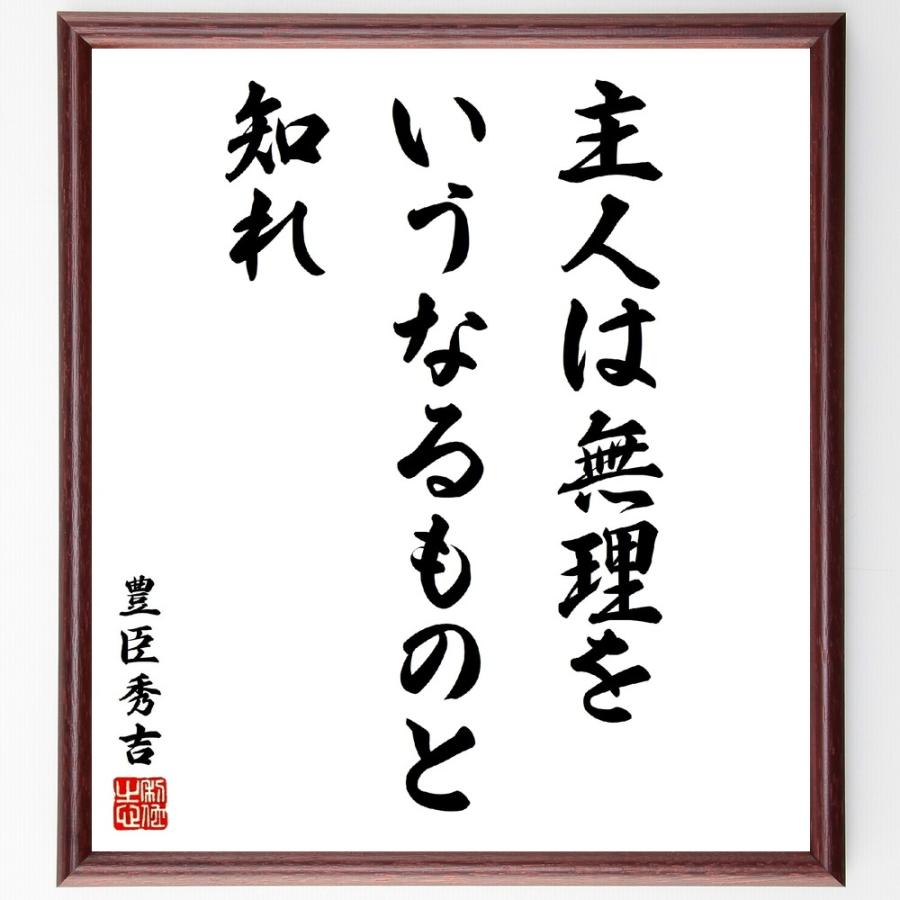 主人は無理を
いうなるものと
知れ
豊臣秀吉